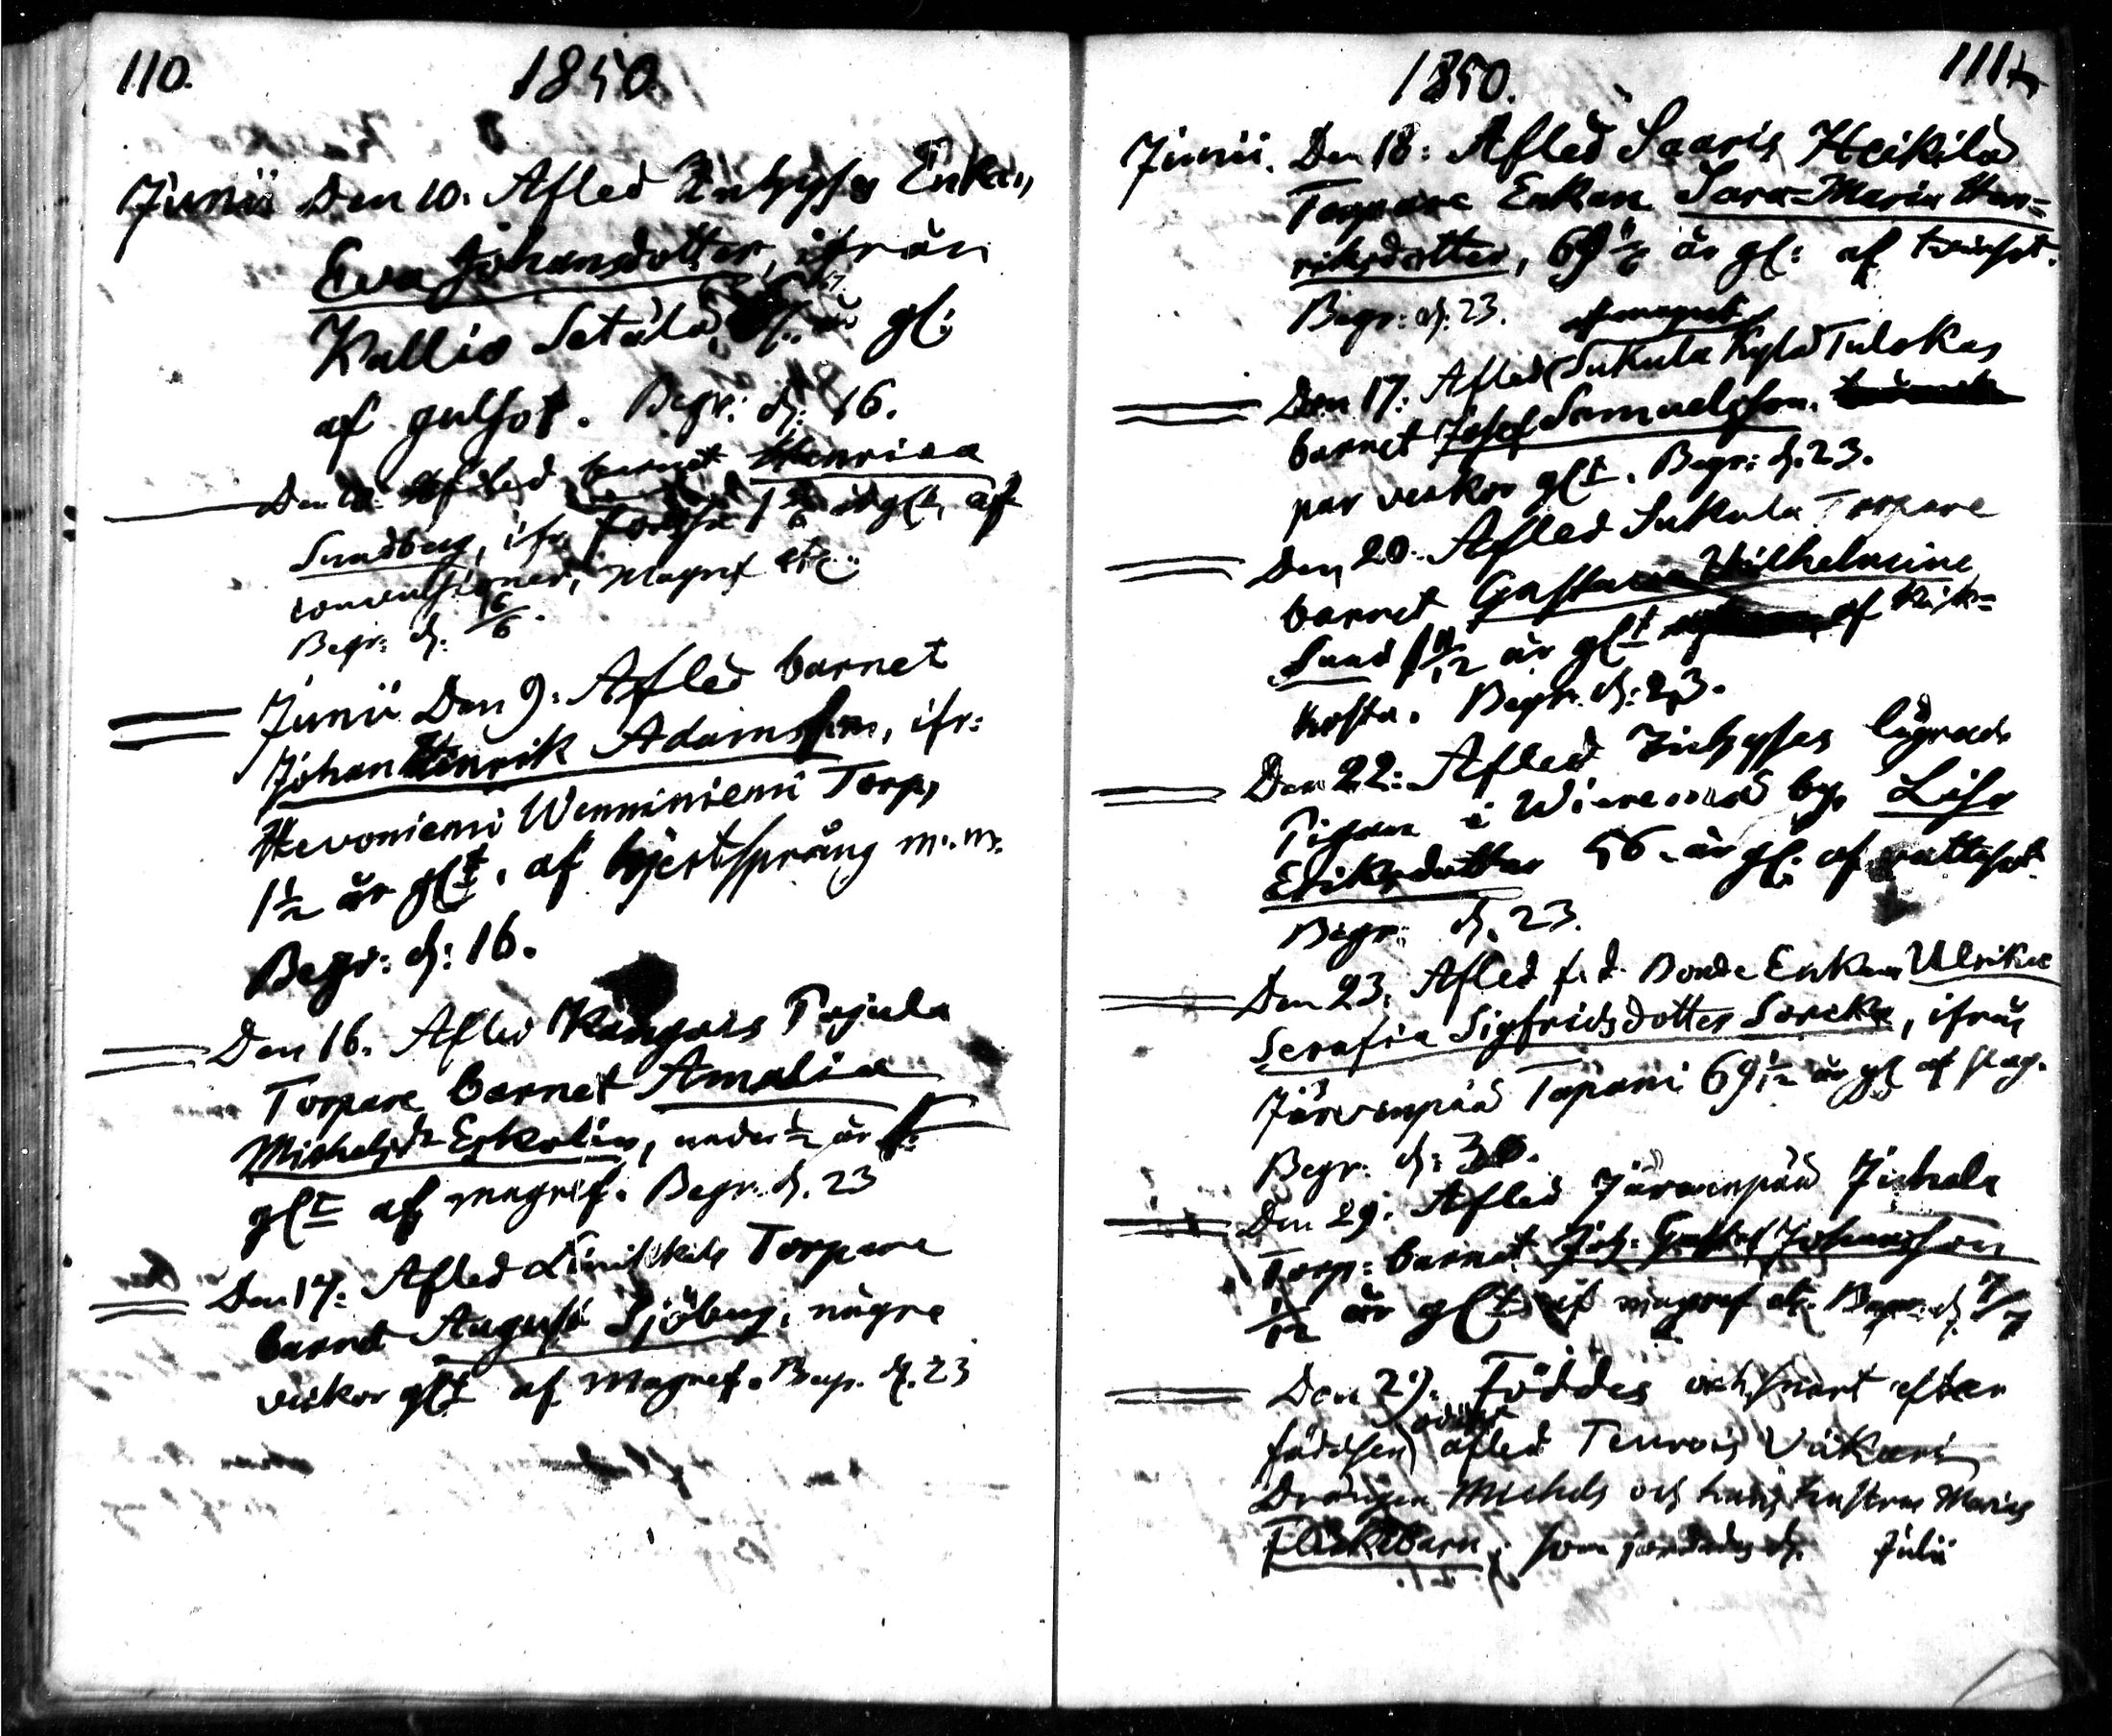 110. 1850.
Junii Den 10. Afled Inhyses Enkan
Eva Johansdotter, ifrån
Kallio Setälä, år gl:
af gulsot. Begr: d: 16.
Den Afled barnet Henrica
Sundberg, ifr. Forssa 1 år gl. af
convulsioner, Magref etc.
Begr: d. 16/6.
Junii Den 9: Afled barnet
Johan Henrik Adamsson, ifr:
Hevoniemi Wenniniemi Torp,
1½ år glt. af hjertsprång m.m.
Begr: d: 16.
Den 16. Afled Kangais Pojula
Torpare barnet Amalia
Michelsdr Eskolin, under ½ år
glt af magref. Begr. d. 23
Den 17: Afled Torpare
barnet August Sjöberg, några
veckor glt af Magref. Begr. d. 23
1850. 111
Junii. Den 18: Afled Saaris Heikilä
Torpare Enkan Sara-Maria Hen=
riksdotter, 69 år gl: af tvinsot.
Begr: d: 23. af magref
Den 17: Afled Sukula Kylä Tulokas
barnet Josef Samuelsson,
par veckor glt. Begr: d. 23.
Den 20. Afled Sukula Torpare
barnet Gustava Wilhelmine
Sund 1 år glt af Kik=
hosta. Begr. d: 23.
Den 22: Afled Inhyses lägrade
Pigan i by. Lisa
Eriksdotter 56. år gl: af vattusot.
Begr: d. 23.
Den 23. Afled f.d. Bonde Enkan Ulrika
Serafia Sigfridsdotter Soreka, ifrån
Järvenpää Tapani 69 1/12 år gl af slag.
Begr. d: 30.
Den 29. Afled Järvenpää Juhala
Torp: barnet Joh: Gustaf Johansson
1/12 år glt af magref etc. Begr. d. 7/7
Den 29: Föddes och snart efter
födelsen odöpt afled Teurois Väkäri
Drängen Michels och hans hustrus Marias
Flickebarn, som jordades d. Julii